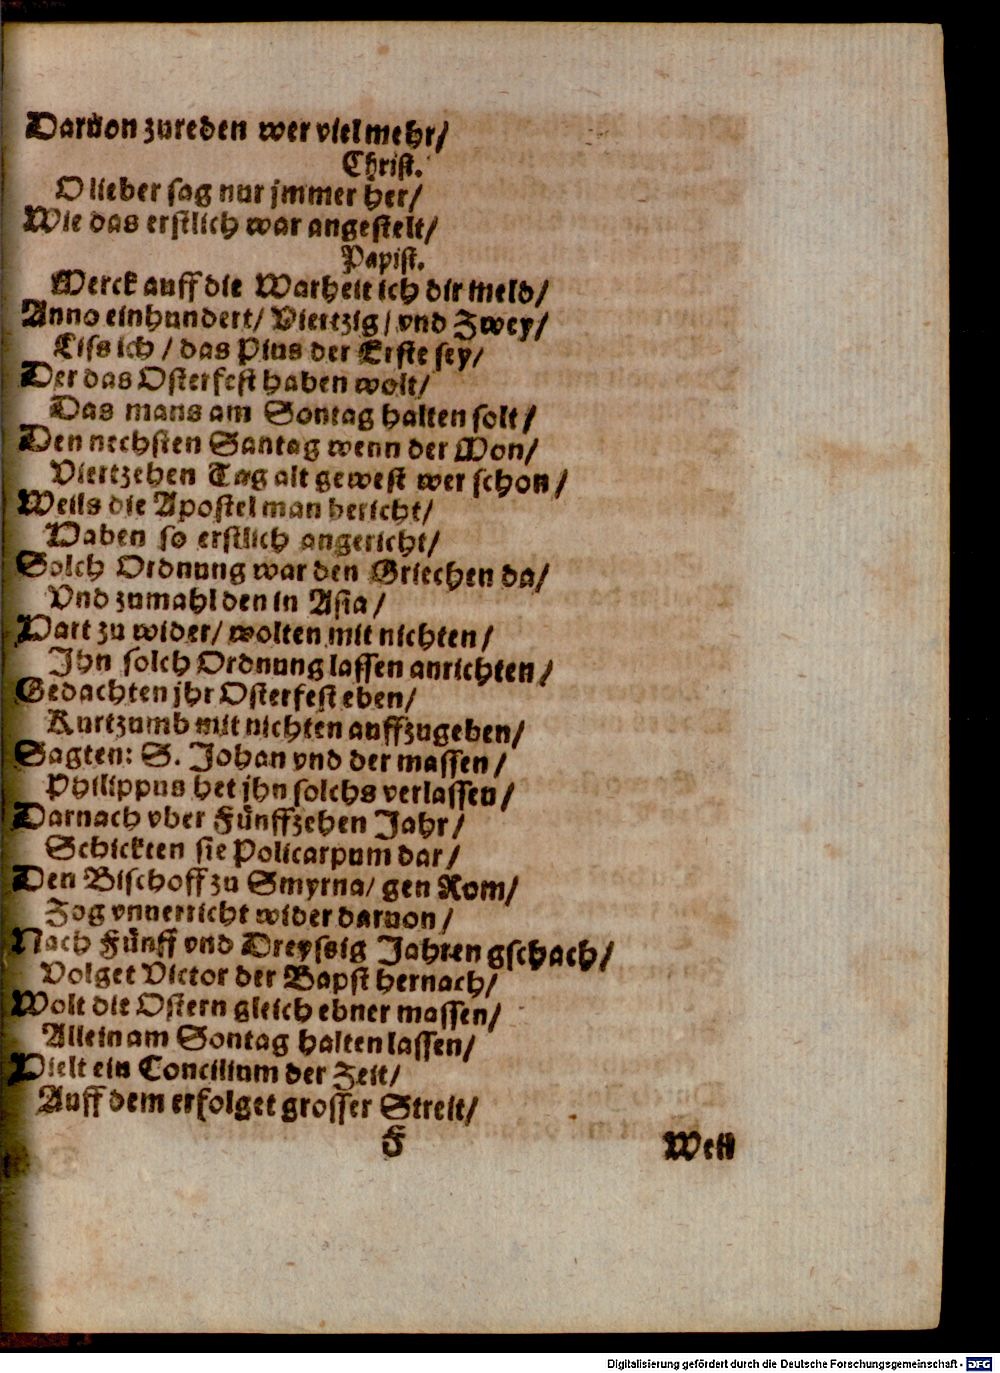 Daruon zureden wer viel mehr/
Christ.
O lieber sag nur jmmer her/
Wie das erstlich war angestelt/
Papist.
Merck auff die Warheit ich dir meld/
Anno einhundert/ Viertzig/ vnd Zwey/
Liss ich/ das Pius der Erste sey/
Der das Osterfest haben wolt/
Das mans am Sontag halten solt/
Den nechsten Santag wenn der Mon/
Viertzehen Tag alt gewest wer schon/
Weils die Apostel man bericht/
Haben so erstlich angericht/
Solch Ordnung war den Griechen da/
Vnd zumahl den in Asia/
Hart zu wider/ wolten mit nichten/
Jhn solch Ordnung lassen anrichten/
Gedachten jhr Osterfest eben/
Kurtzumb mit nichten auffzugeben/
Sagten: S. Johan vnd der massen/
Philippus het jhn solchs verlassen/
Darnach vber Fünffzehen Jahr/
Schickten sie Policarpum dar/
Den Bischoff zu Smyrna/ gen Rom/
Zog vnuerricht wider daruon/
Nach Fünff vnd Dreyssig Jahren gschach/
Volget Victor der Bapst hernach/
Wolt die Ostern gleich ebner massen/
Allein am Sontag halten lassen/
Hielt ein Concilium der Zeit/
Auff dem erfolget grosser Streit/
F
Weil
Digitalisierung gefördert durch die Deutsche Forschungsgemeinschaft - DFG